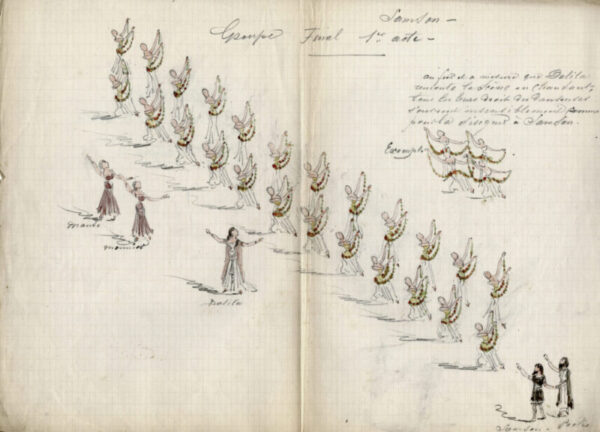 Samson -
Groupe Final 1er acte -
au fur et a mesure que Dalila
remonte la Scène en chantant,
tous les bras droit des danseuses
s'ouvrent insensiblement comme
pour la désigner à Samson.
Exemple
Dalila
Samson -